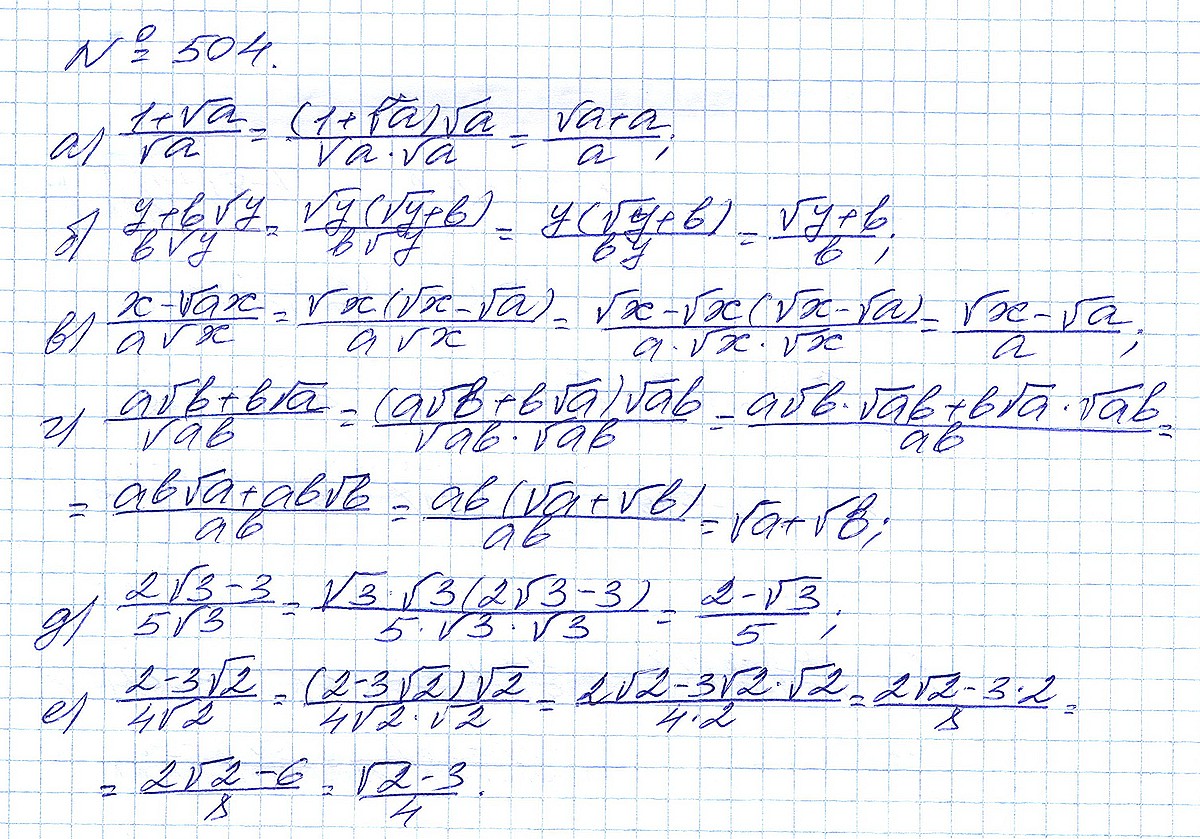 № 504.
а) (1+√a)/(√a) = ((1+√a)√a)/(√a·√a) = (√a+a)/a;
б) (y+b√y)/(b√y) = (√y(√y+b))/(b√y) = (y(√y+b))/(by) = (√y+b)/b;
в) (x-√ax)/(a√x) = (√x(√x-√a))/(a√x) = (√x-√x(√x-√a))/(a·√x·√x) = (√x-√a)/a;
г) (a√b+b√a)/(√ab) = ((a√b+b√a)√ab)/(√ab·√ab) = (a√b·√ab+b√a·√ab)/(ab) =
= (ab√a+ab√b)/(ab) = (ab(√a+√b))/(ab) = √a+√b;
д) (2√3-3)/(5√3) = (√3·√3(2√3-3))/(5·√3·√3) = (2-√3)/5;
е) (2-3√2)/(4√2) = ((2-3√2)√2)/(4√2·√2) = (2√2-3√2·√2)/(4·2) = (2√2-3·2)/8 =
= (2√2-6)/8 = (√2-3)/4.